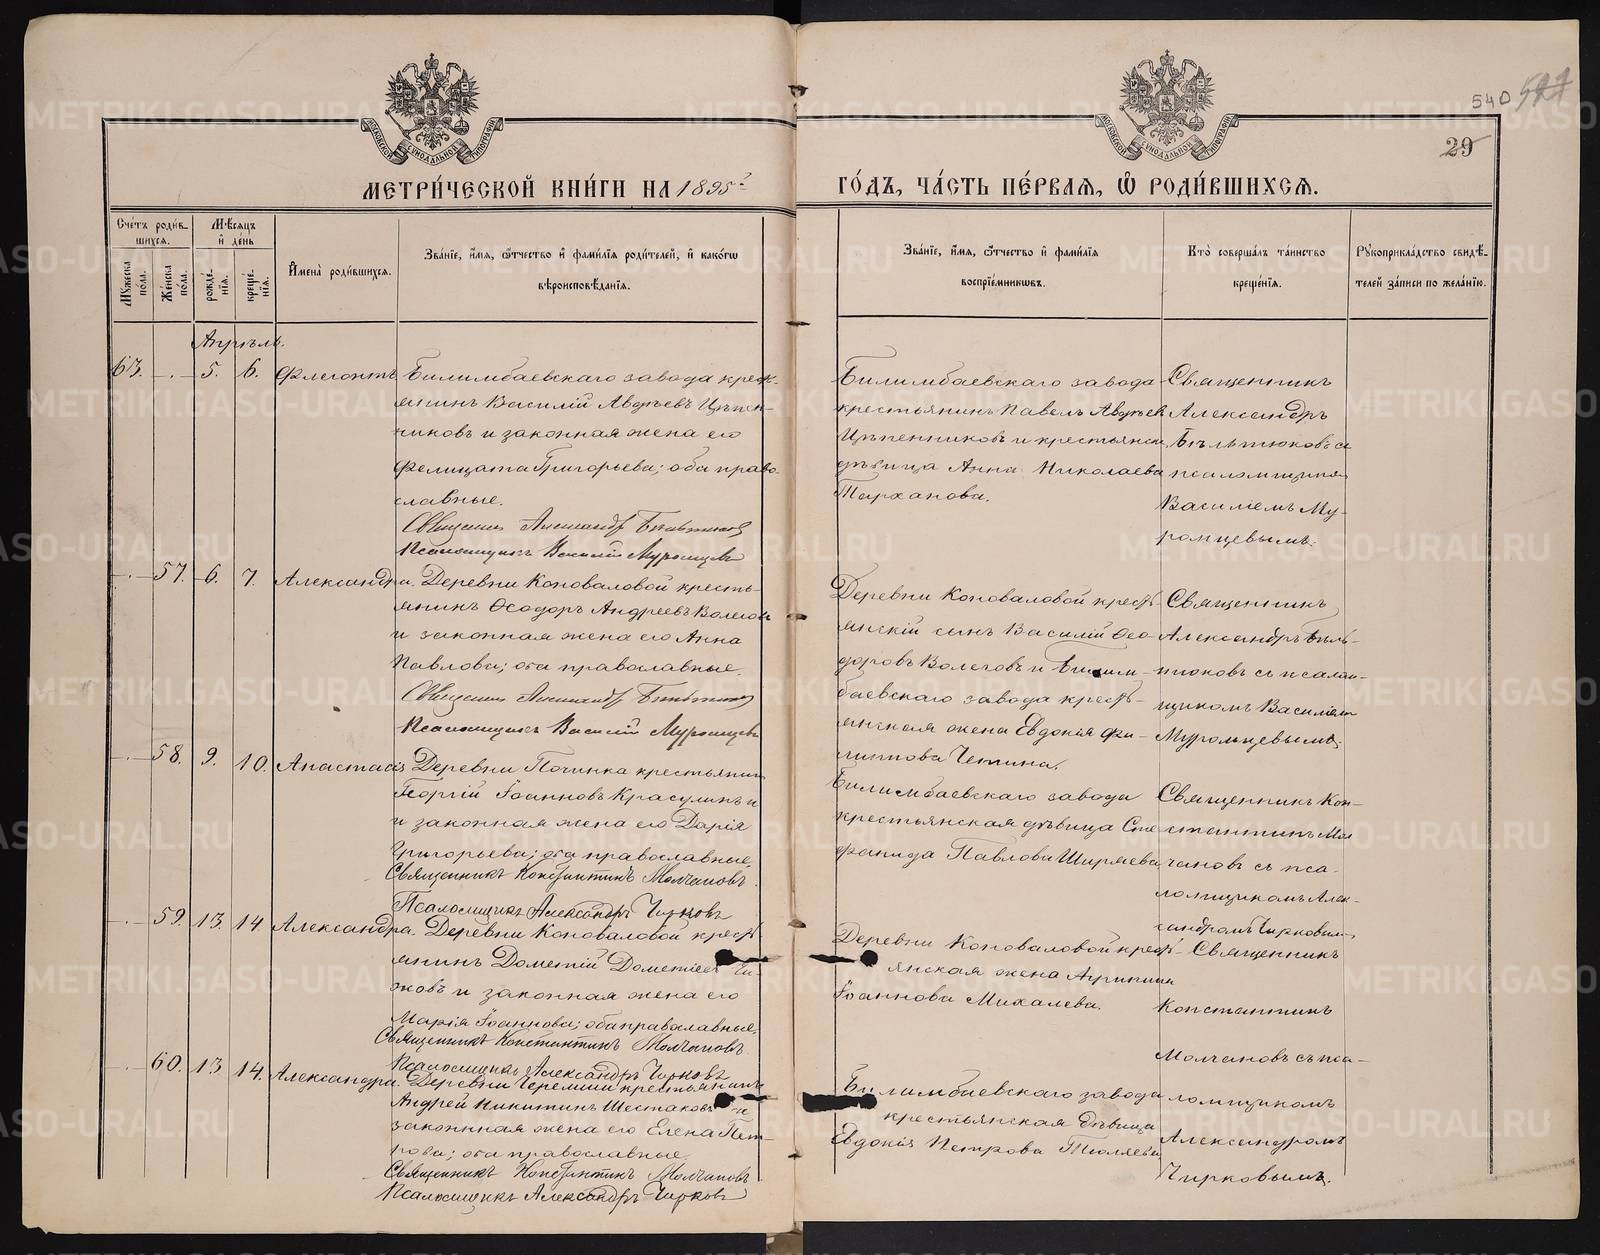 540 577
29
МОСКОВСКОЙ СѴНОДАЛЬНОЙ ТИПОГРАФІИ
МОСКОВСКОЙ СѴНОДАЛЬНОЙ ТИПОГРАФІИ
МЕТРИ́ЧЕСКОЙ КНИ́ГИ НА 1895 г.
ГО́ДЪ, ЧА́СТЬ ПЕ́РВАЯ, Ѽ РОДИ́ВШИХСЯ.
Сче́тъ роди́в-
шихся.
Мѣ́сяцъ
и҆ де́нь
Му́жеска
по́ла.
Же́нска
по́ла.
рожде́-
нія.
креще́-
нія.
И҆мена̀ роди́вшихся.
Зва́ніе, и҆́мя, ѻ҆́тчество и҆ фами́лія роди́телей, и҆ како́гѡ
вѣроисповѣ́данія.
Зва́ніе, и҆́мя, ѻ҆́тчество и҆ фами́лія
воспріе́мникѡвъ.
Кто̀ соверша́лъ та́инство
креще́нія.
Рꙋкоприкла́дство свидѣ́-
телей за́писи по жела́нію.
Апрѣль.
63. — 5. 6. Флегонтъ
Билимбаевскаго завода кресть-
янинъ Василій Авдѣевъ Цѣпен-
никовъ и законная жена его
Фелицата Григорьева; оба право-
славные.
Священникъ Александръ Бѣльтюковъ
Псаломщикъ Василій Муромцевъ
Билимбаевскаго завода
крестьянинъ Павелъ Авдѣевъ
Цѣпенниковъ и крестьянск.
дѣвица Анна Николаева
Тарханова.
Священникъ
Александръ
Бѣльтюковъ съ
псаломщикомъ
Василіемъ Му-
ромцевымъ.
— 57. 6. 7. Александра.
Деревни Коноваловой кресть-
янинъ Ѳеодоръ Андреевъ Волеговъ
и законная жена его Анна
Павлова; оба православные.
Священникъ Александръ Бѣльтюковъ
Псаломщикъ Василій Муромцевъ
Деревни Коноваловой крест-
янскій сынъ Василій Ѳео-
доровъ Волеговъ и Билим-
баевскаго завода крест-
янская жена Евдокія Фи-
липпова Чепина.
Священникъ
Александръ Бѣль-
тюковъ съ псалом-
щикомъ Василіемъ
Муромцевымъ.
— 58. 9. 10. Анастасія
Деревни Починка крестьянинъ
Георгій Іоанновъ Красулинъ и
и законная жена его Дарія
Григорьева; оба православные.
Священникъ Константинъ Молчановъ.
Псаломщикъ Александръ Чирковъ
Билимбаевскаго завода
крестьянская дѣвица Сте-
фанида Павлова Ширяева.
Священникъ Кон-
стантинъ Мол-
чановъ съ пса-
ломщикомъ Алек-
сандромъ Чирковым.
— 59. 13. 14. Александра.
Деревни Коноваловой крест-
янинъ Дометій Дометіевъ Чи-
жовъ и законная жена его
Марія Іоаннова; оба православные.
Священникъ Константинъ Молчановъ.
Псаломщикъ Александръ Чирковъ
Деревни Коноваловой крест-
янская жена Агрипина
Іоаннова Михалева.
Священникъ
Константинъ
Молчановъ съ пса-
ломщикомъ
Александромъ
Чирковымъ.
— 60. 13 14. Александра.
Деревни Черемши крестьянинъ
Андрей Никитинъ Шестаковъ и
законная жена его Елена Пет-
рова; оба православные.
Священникъ Константинъ Молчановъ
Псаломщикъ Александръ Чирковъ
Билимбаевскаго завода
крестьянская дѣвица
Евдокія Петрова Тюляева